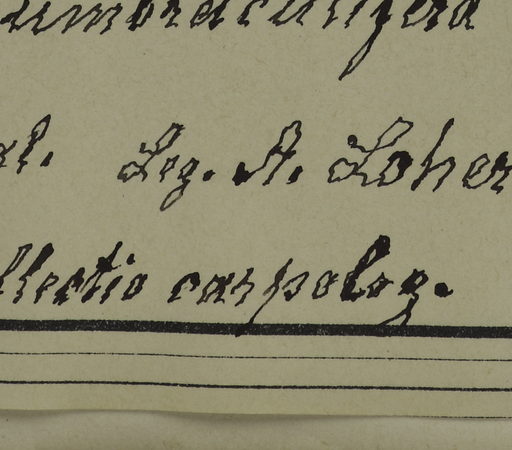 umbraculifera
al. Leg. A. Loher
llectio carpolog.